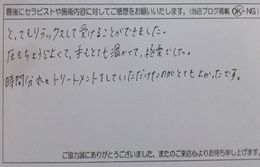 最後にセラピストや施術内容に対してご感想をお願いいたします。(当店ブログ掲載 OK・NG)
とってもリラックスして受けることができました。
圧もちょうどよくて、手もとても温かくて、極楽でした。
時間分たっぷりトリートメントをしていただけたのがとてもよかったです。
ご協力誠にありがとうございました。またのご来店心よりお待ち申し上げます。